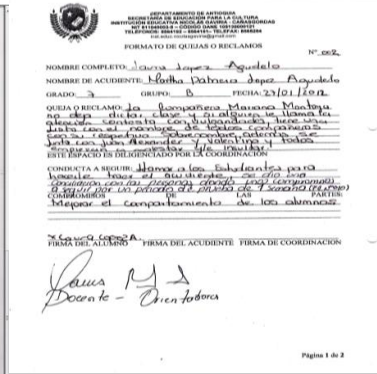 DEPARTAMENTO DE ANTIOQUIA
SECRETARIA DE EDUCACIÓN PARA LA CULTURA
INSTITUCIÓN EDUCATIVA NICOLAS GAVIRIA - CAÑASGORDAS
FORMATO DE QUEJAS O RECLAMOS
N° 002
NOMBRE COMPLETO: Laura Lopez Agudelo
NOMBRE DE ACUDIENTE: Martha Patricia Lopez Agudelo
GRADO: 7 GRUPO: B FECHA: 27/01/2012
QUEJA O RECLAMO: La Compañera Mariana Montoya
no deja dictar clase y si alguien le llama la
atención contesta con vulgaridades, tiene una
lista con el nombre de todos compañeros
con su respectivo sobrenombre, además se
junta con Juan Alexander y Valentina y todos
empiezan a molestar y insultar.
ESTE ESPACIO ES DILIGENCIADO POR LA COORDINACIÓN
CONDUCTA A SEGUIR: Llamar a los Estudiantes para
hacerle traer el acudiente,
a seguir por un periodo de prueba de 1 semana
COMPROMISOS DE LAS PARTES:
Mejorar el comportamiento de los alumnos
Laura Lopez A.
FIRMA DEL ALUMNO FIRMA DEL ACUDIENTE FIRMA DE COORDINACION
Docente - Orientadora
Página 1 de 2